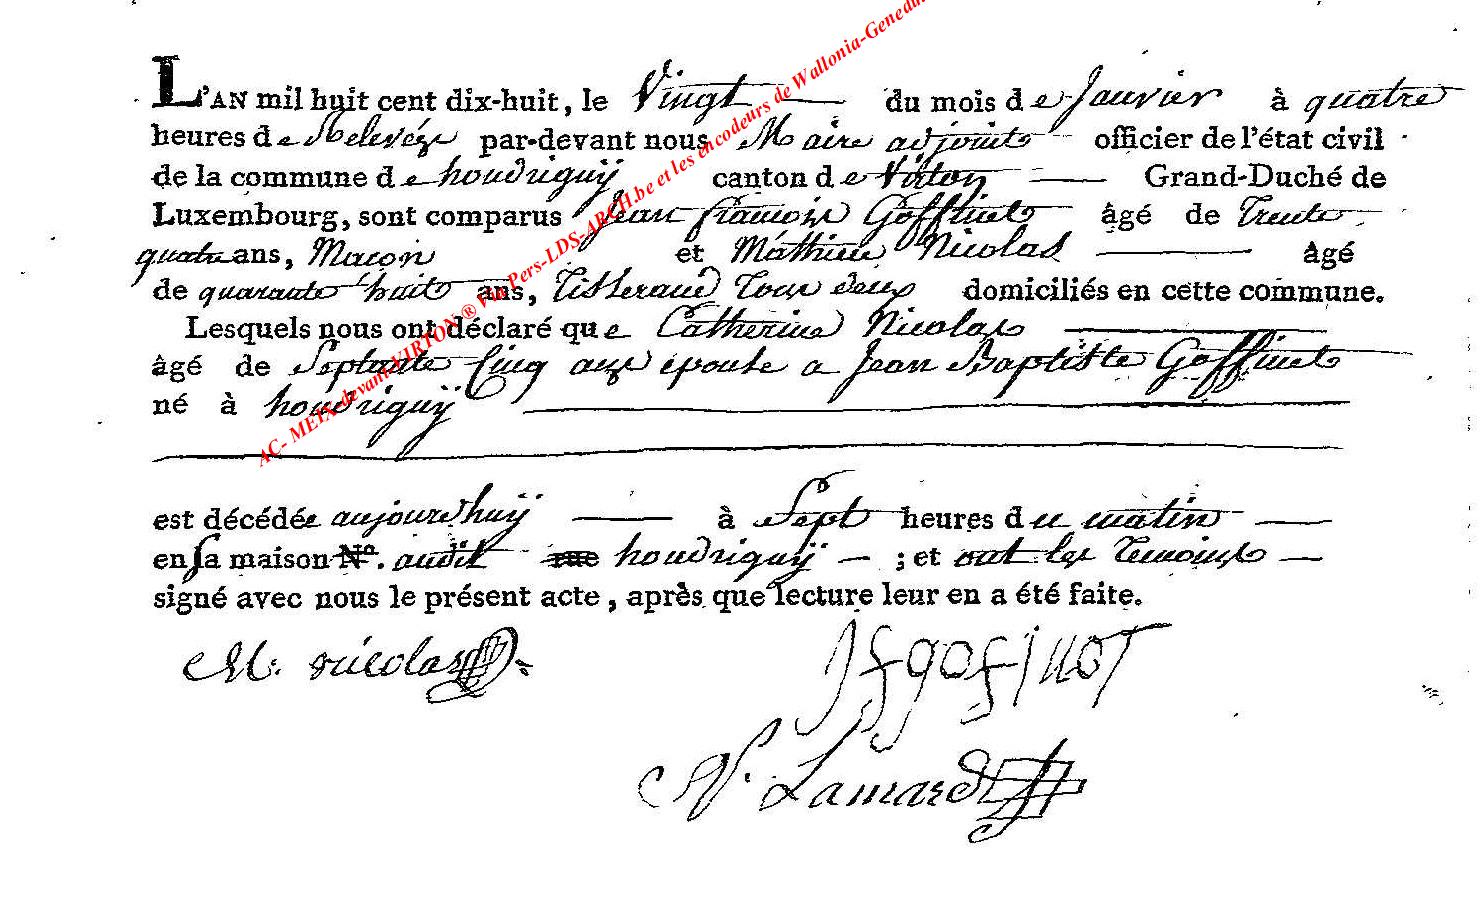 L'AN mil huit cent dix-huit, le Vingt du mois de Janvier à quatre
heures de Relevéz par-devant nous Maire adjoint officier de l'état civil
de la commune de houdriguÿ canton de Virton Grand-Duché de
Luxembourg, sont comparus Jean françois Goffinet âgé de Trente
quatre ans, Macon et Mathieu Nicolas âgé
de quarante huit ans, Tisserand Tous deux domiciliés en cette commune.
Lesquels nous ont déclaré que Catherine Nicolas
âgé de Septante Cinq ans épouse a Jean Baptiste Goffinet
né à houdriguÿ
est décédée aujourdhuÿ à Sept heures du matin
en sa maison N°. audit rue houdriguÿ ; et ont les Temoins
signé avec nous le présent acte, après que lecture leur en a été faite.
M: nicolas
J f gofinet
N. Lamard
AC- MEIX-devant-VIRTON ® Via Pers-LDS-ARCH.be et les encodeurs de Wallonia-Geneanet